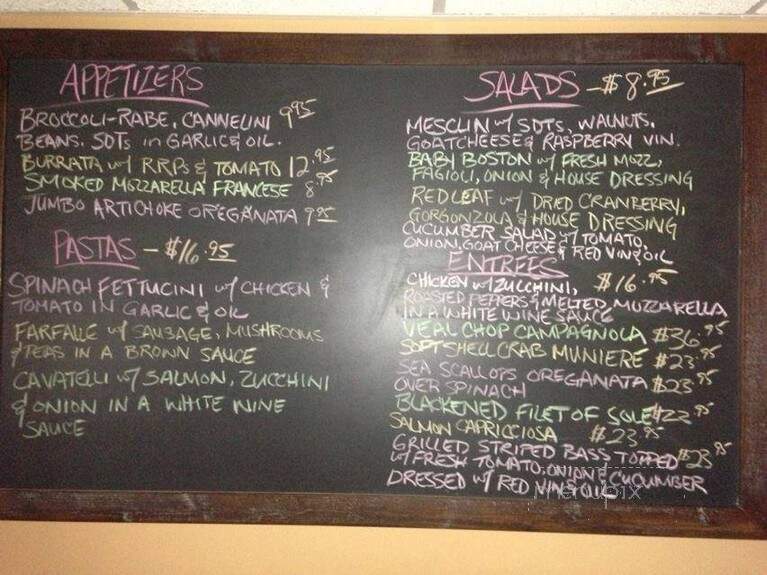 APPETIZERS
BROCCOLI-RABE, CANNELINI 9.95
BEANS, SDTs in GARLIC & OIL.
BURRATA w/ RRPs & TOMATO 12.95
SMOKED MOZZARELLA FRANCESE 8.95
JUMBO ARTICHOKE OREGANATA 9.95
PASTAS - $16.95
SPINACH FETTUCINI w/ CHICKEN &
TOMATO IN GARLIC & OIL
FARFALLE w/ SAUSAGE, MUSHROOMS
& PEAS IN A BROWN SAUCE
CAVATELLI w/ SALMON, ZUCCHINI
& ONION IN A WHITE WINE
SAUCE
SALADS - $8.95
MESCLIN w/ SDTS, WALNUTS,
GOATCHEESE & RASPBERRY VIN.
BABY BOSTON w/ FRESH MOZZ,
FAGIOLI, ONION & HOUSE DRESSING
RED LEAF w/ DRIED CRANBERRY,
GORGONZOLA & HOUSE DRESSING
CUCUMBER SALAD w/ TOMATO,
ONION, GOAT CHEESE & RED VIN & OIL
ENTREES
CHICKEN w/ ZUCCHINI, $16.95
ROASTED PEPPERS & MELTED MUZZARELLA
IN A WHITE WINE SAUCE
VEAL CHOP CAMPAGNOLA $36.95
SOFTSHELL CRAB MUNIERE $23.95
SEA SCALLOPS OREGANATA $23.95
OVER SPINACH
BLACKENED FILET OF SOLE $22.95
SALMON CAPRICCIOSA $23.95
GRILLED STRIPED BASS TOPPED $23.95
w/ FRESH TOMATO, ONION & CUCUMBER
DRESSED w/ RED VIN & OIL
menupix